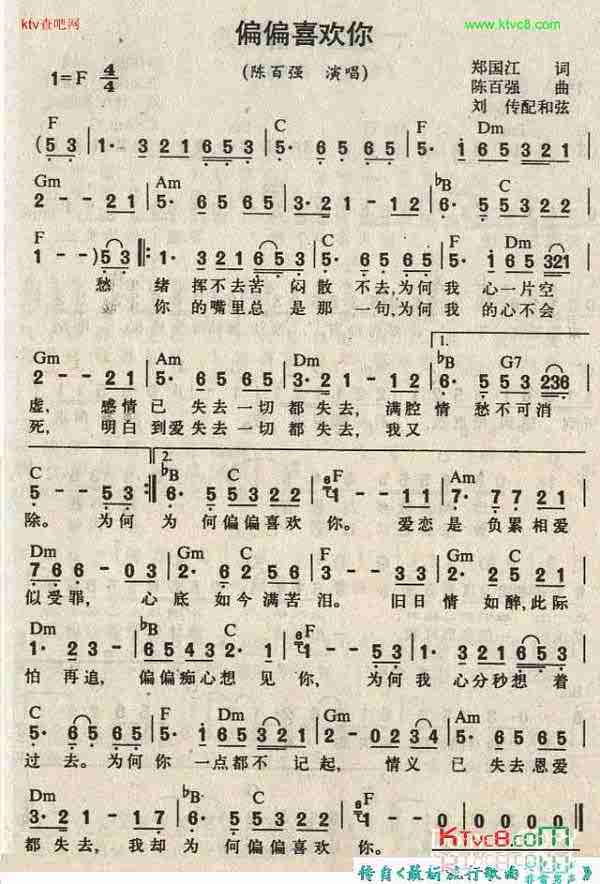 ktv查吧网
www.ktvc8.com
偏偏喜欢你
(陈百强 演唱)
1=F 4/4
郑国江 词
陈百强 曲
刘 传配和弦
F C F Dm
(5 3 | 1· 3 2 1 6 5 3 | 5· 6 5 6 5 | 5· 1 6 5 3 2 1 |
Gm Am ♭B C
2 - - 2 1 | 5· 6 5 6 5 | 3· 2 1 - 1 2 | 6· 5 5 3 2 2 |
F C F Dm
1 - - ) 5 3 ‖: 1· 3 2 1 6 5 3 | 5· 6 5 6 5 | 5· 1 6 5 321 |
愁 绪 挥不去苦 闷散 不去,为何我 心一片空
你 的嘴里总 是那 一句,为何我 的心不会
1.
Gm Am Dm ♭B G7
2 - - 2 1 | 5· 6 5 6 5 | 3· 2 1 - 1 2 | 6· 5 5 3 236 |
虚, 感情已 失去一切都失去, 满腔情 愁不可消
死, 明白到爱失去一切都失去, 我又
2.
C ♭B C F Am
5 - - 5 3 :‖ 6· 5 5 3 2 2 | 1 - - 1 1 | 7· 7 7 2 1 |
除。 为何 为 何偏偏喜欢 你。 爱恋是 负累相爱
Dm Gm C F Gm C
7 6 6 - 0 3 | 2· 6 2 5 4 | 3 - - 3 3 | 2· 2 5 2 1 |
似受罪, 心底 如今满苦泪。 旧日情 如醉,此际
Dm ♭B C F
1· 2 3 - | 6 5 4 5 2 3 | 1 - - 5 3 | 1· 3 2 1 6 5 3 |
怕 再追, 偏偏痴心想 见 你, 为何我 心分秒想 着
C Dm Gm Am
5· 6 5 6 5 | 5· 1 6 5 3 2 1 | 2 - 0 2 3 4 | 5· 6 5 6 5 |
过 去。为何你 一点都不 记起, 情义 已 失去恩爱
Dm ♭B C F
3· 2 1 - 1 2 | 6· 5 5 3 2 2 | 1 - - 0 | 0 0 0 0 ‖
都失去, 我却为何偏偏喜欢 你.
KTvc8.com